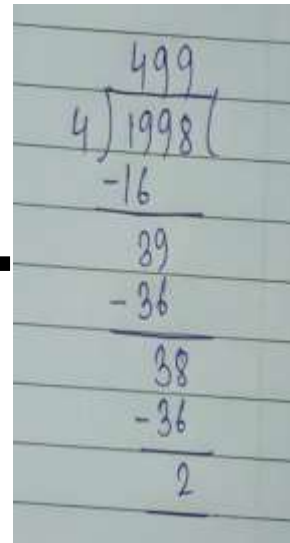 499
4)1998(
-16
39
-36
38
-36
2